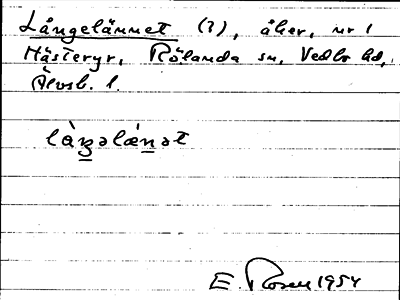 Långelännet (?), åker, nr 1
Hästeryr, Rölanda sn, Vedbo hd,
Älvsb. l.
làŋəlǽnət
E. Rosen 1954